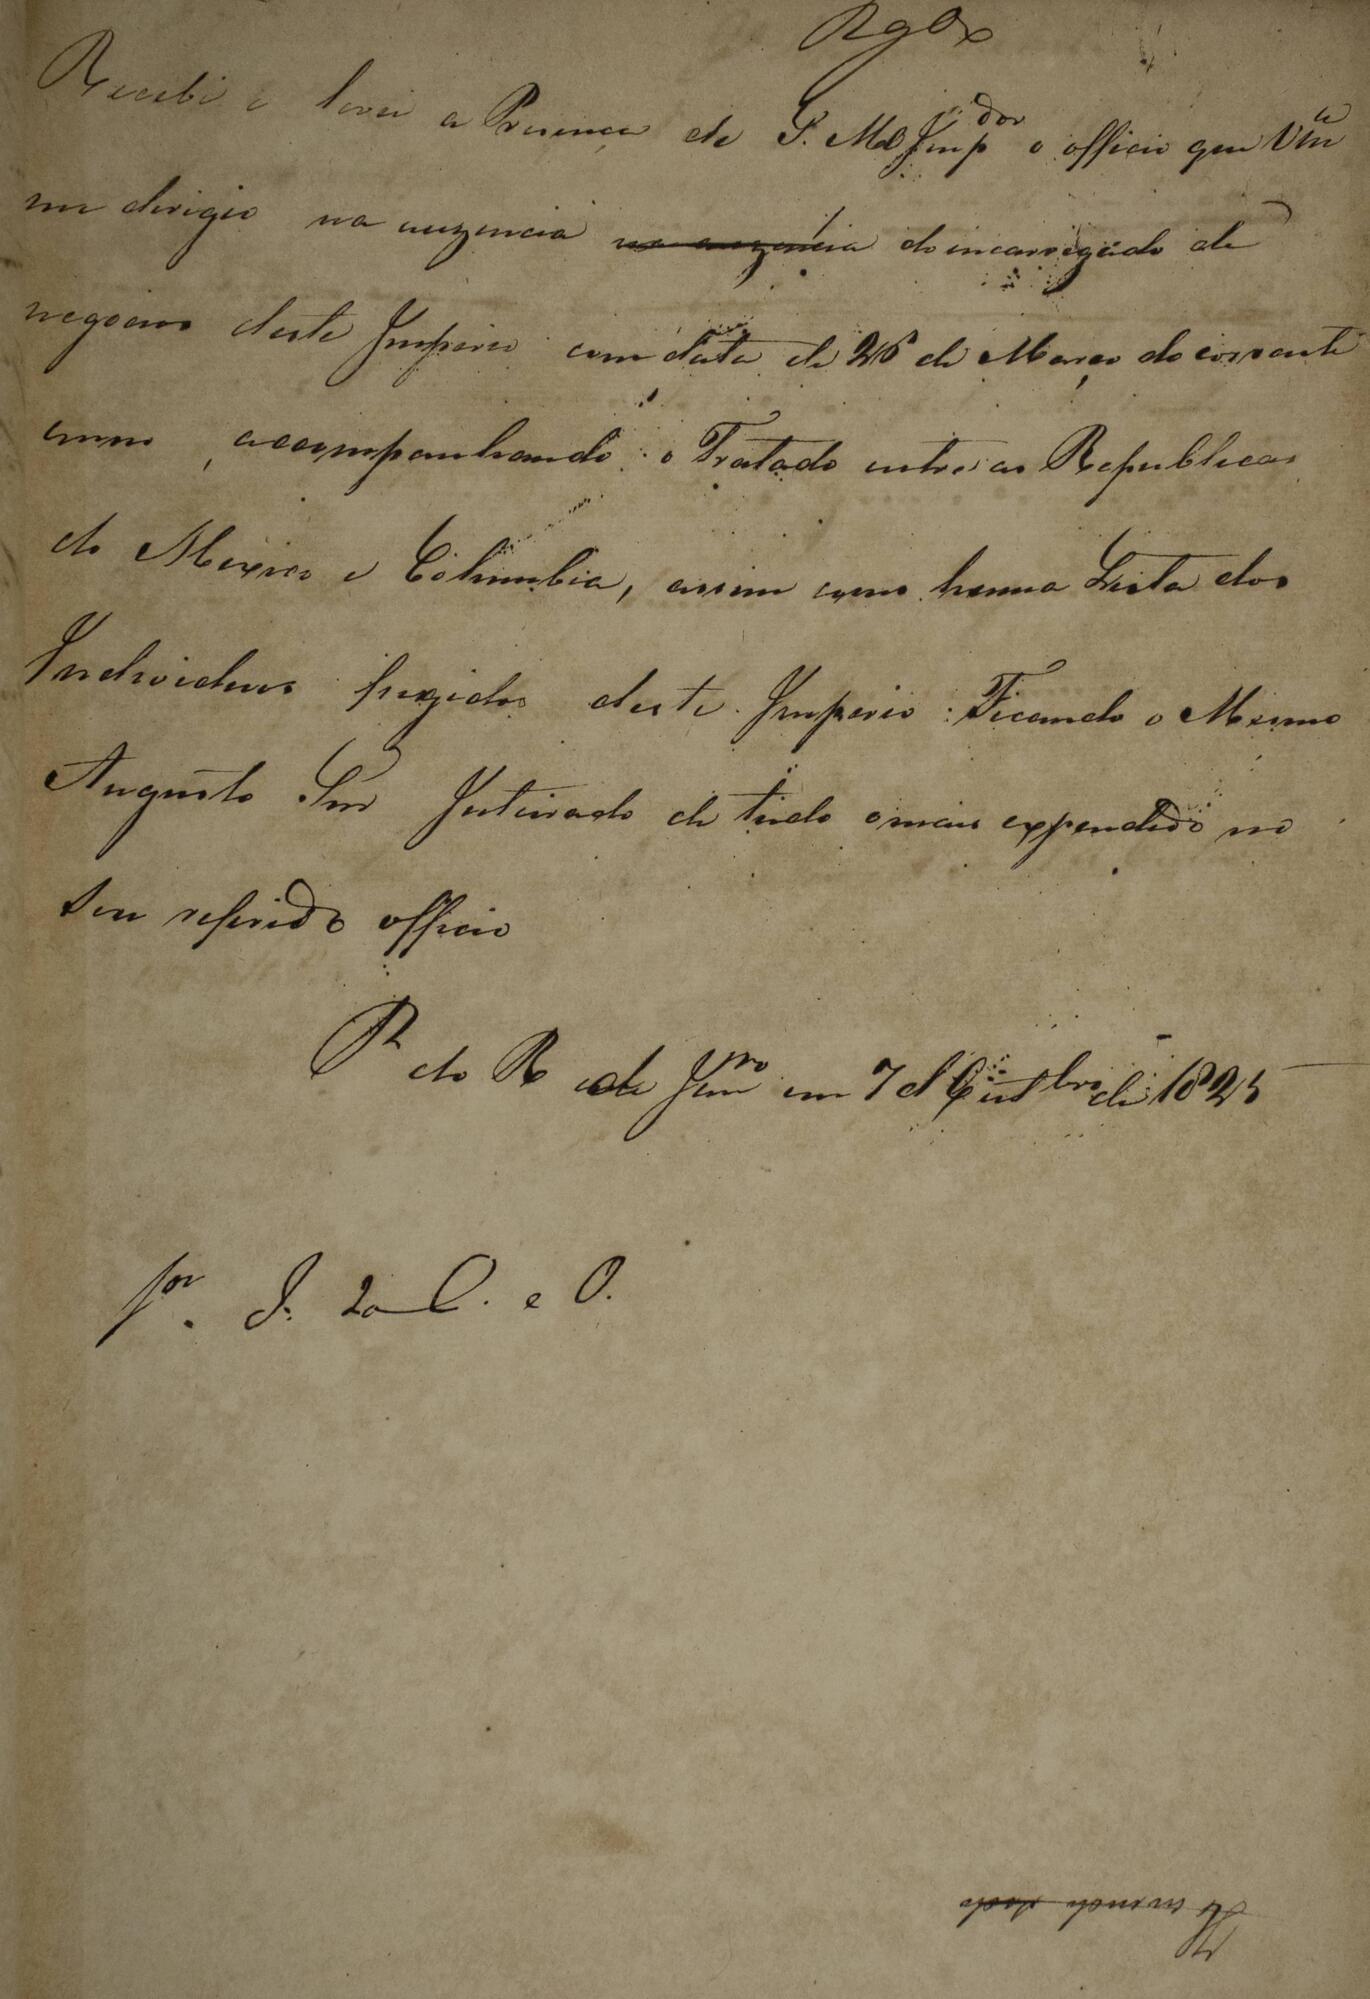 Recebi e levei a Presença de S. M. o Imp.dor o officio que Vm.ce
me dirigio na auzencia na auzencia do incarregado de
negocios deste Imperio com data de 26 de Março do corrente
anno, acompanhando o Tratado entre as Republicas
do Mexico e Columbia, assim como huma Lista dos
Individuos fugidos deste Imperio: Ficando o Mesmo
Augusto Snr Inteirado de tudo o mais expendido no
seu referido officio
P. do R de Janro em 7 d'Outbro de 1825